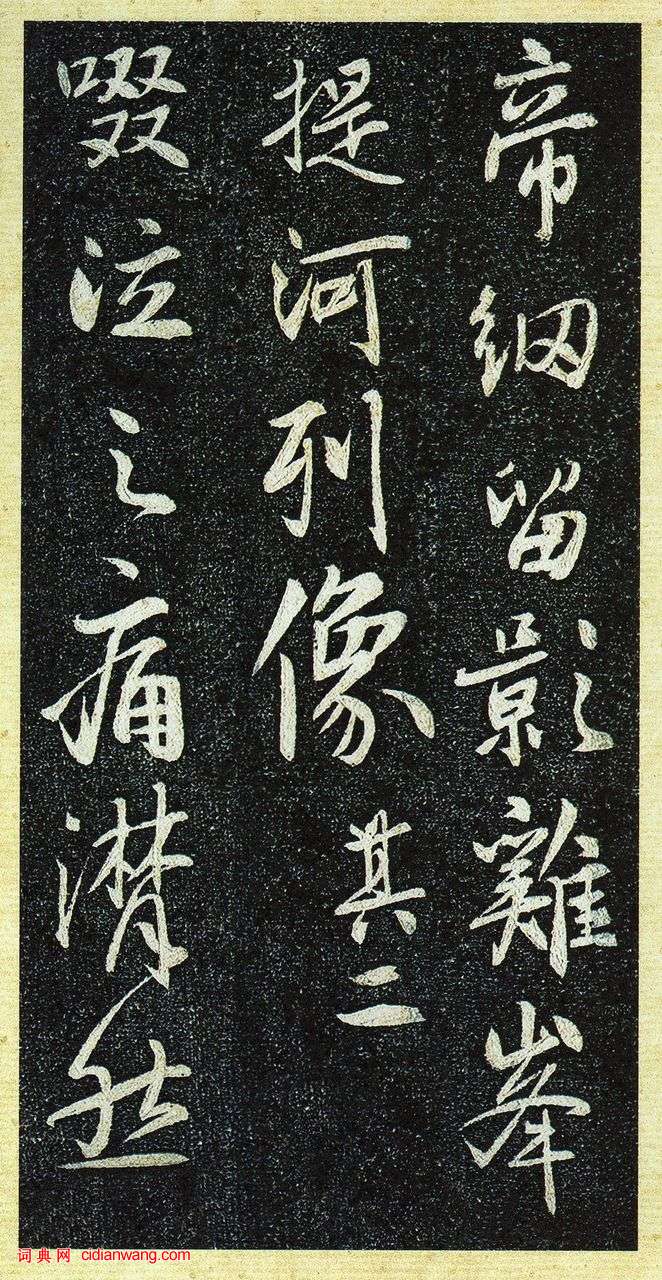 帝網留影雞峯
提河列像其二
啜泣之痛潸然
词典网 cidianwang.com